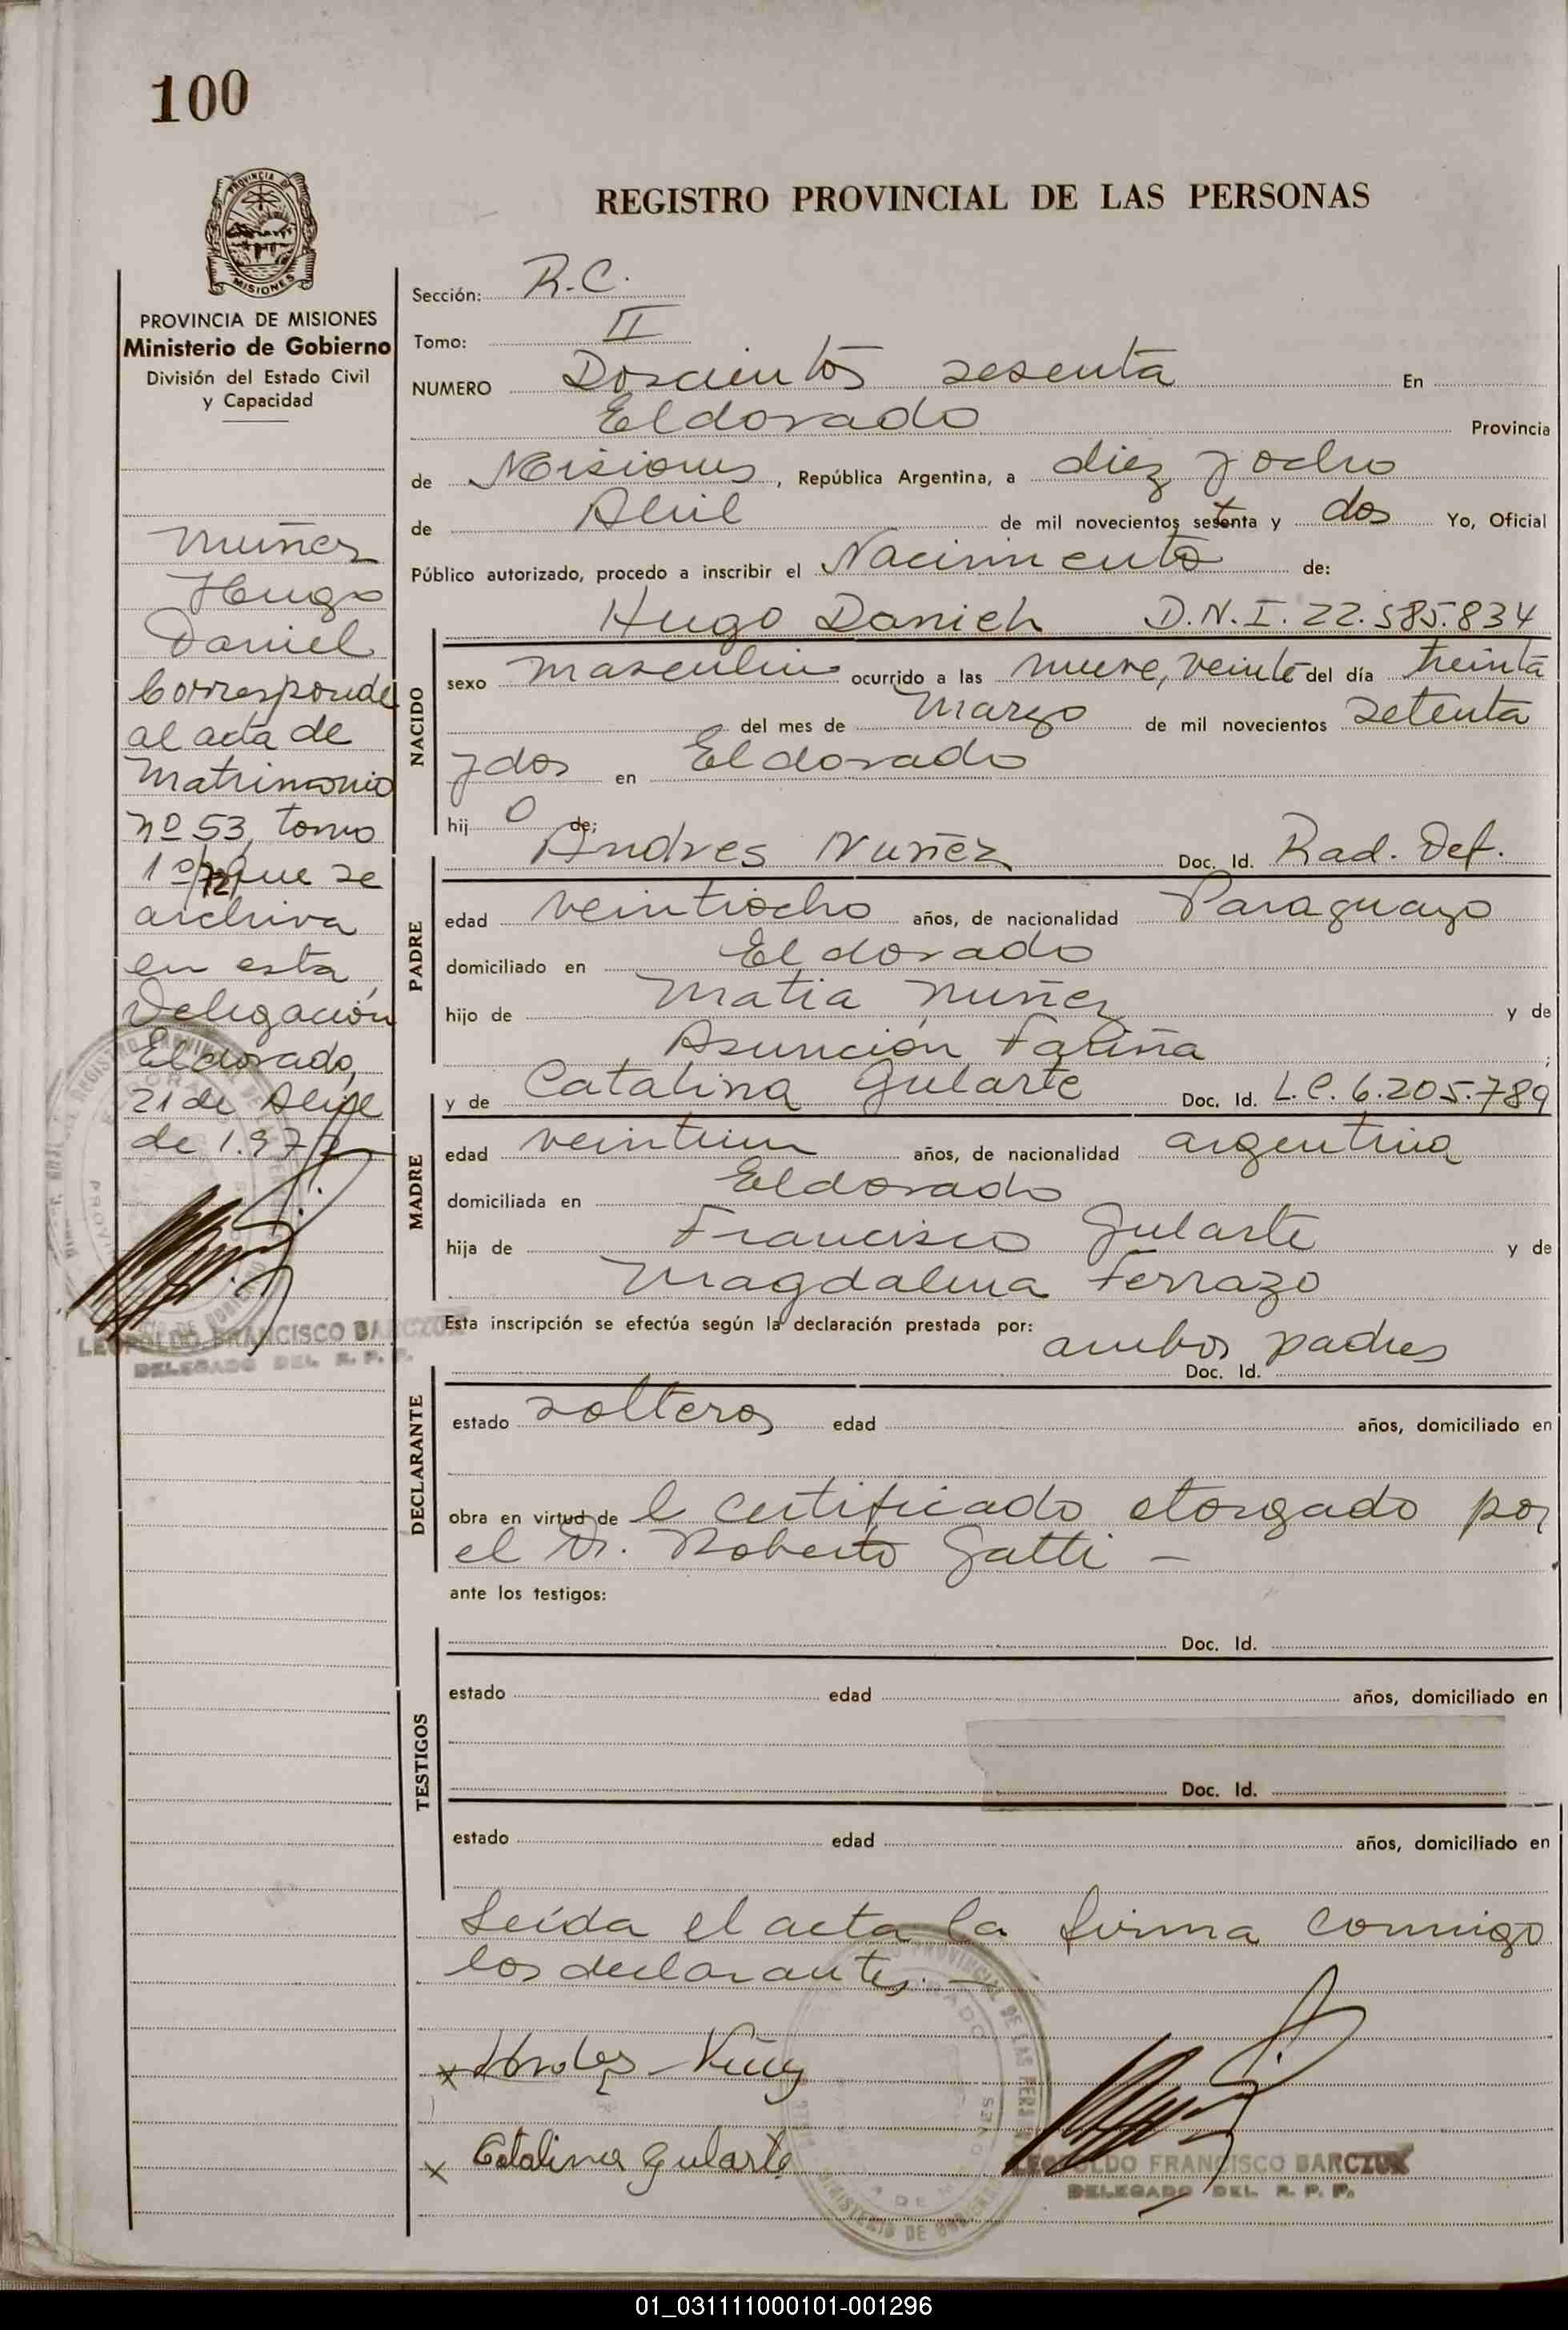 100
PROVINCIA DE
MISIONES
REGISTRO PROVINCIAL DE LAS PERSONAS
PROVINCIA DE MISIONES
Ministerio de Gobierno
División del Estado Civil
y Capacidad
Muñez
Hugo
Daniel
Corresponde
al acta de
Matrimonio
nº 53, tomo
1º/72 que se
archiva
en esta
Delegación
Eldorado,
21 de Abril
de 1.972
LEOPOLDO FRANCISCO BARCZUK
DELEGADO DEL R. P. P.
Sección: R.C.
Tomo: II
NUMERO Doscientos sesenta En
Eldorado Provincia
de Misiones, República Argentina, a diez y ocho
de Abril de mil novecientos setenta y dos Yo, Oficial
Público autorizado, procedo a inscribir el Nacimiento de:
Hugo Daniel D.N.I. 22.585.834
NACIDO
sexo masculino ocurrido a las nueve, veinte del día treinta
del mes de Marzo de mil novecientos setenta
y dos en Eldorado
hij o de:
Andres Nuñez Doc. Id. Rad. Def.
PADRE
edad veintiocho años, de nacionalidad Paraguayo
domiciliado en Eldorado
hijo de Matia Nuñez y de
Asunción Fariña;
y de Catalina Gularte Doc. Id. L.C. 6.205.789
MADRE
edad veintiun años, de nacionalidad argentina
domiciliada en Eldorado
hija de Francisco Gularte y de
Magdalena Ferrazo
Esta inscripción se efectúa según la declaración prestada por: ambos padres
Doc. Id.
DECLARANTE
estado solteros edad años, domiciliado en
obra en virtud de l certificado otorgado por
el Dr. Roberto Gatti -
ante los testigos:
Doc. Id.
TESTIGOS
estado edad años, domiciliado en
Doc. Id.
estado edad años, domiciliado en
Leída el acta la firma conmigo
los declarantes. -
x Andres Nuñez
x Catalina Gularte
LEOPOLDO FRANCISCO BARCZUK
DELEGADO DEL R. P. P.
01_031111000101-001296